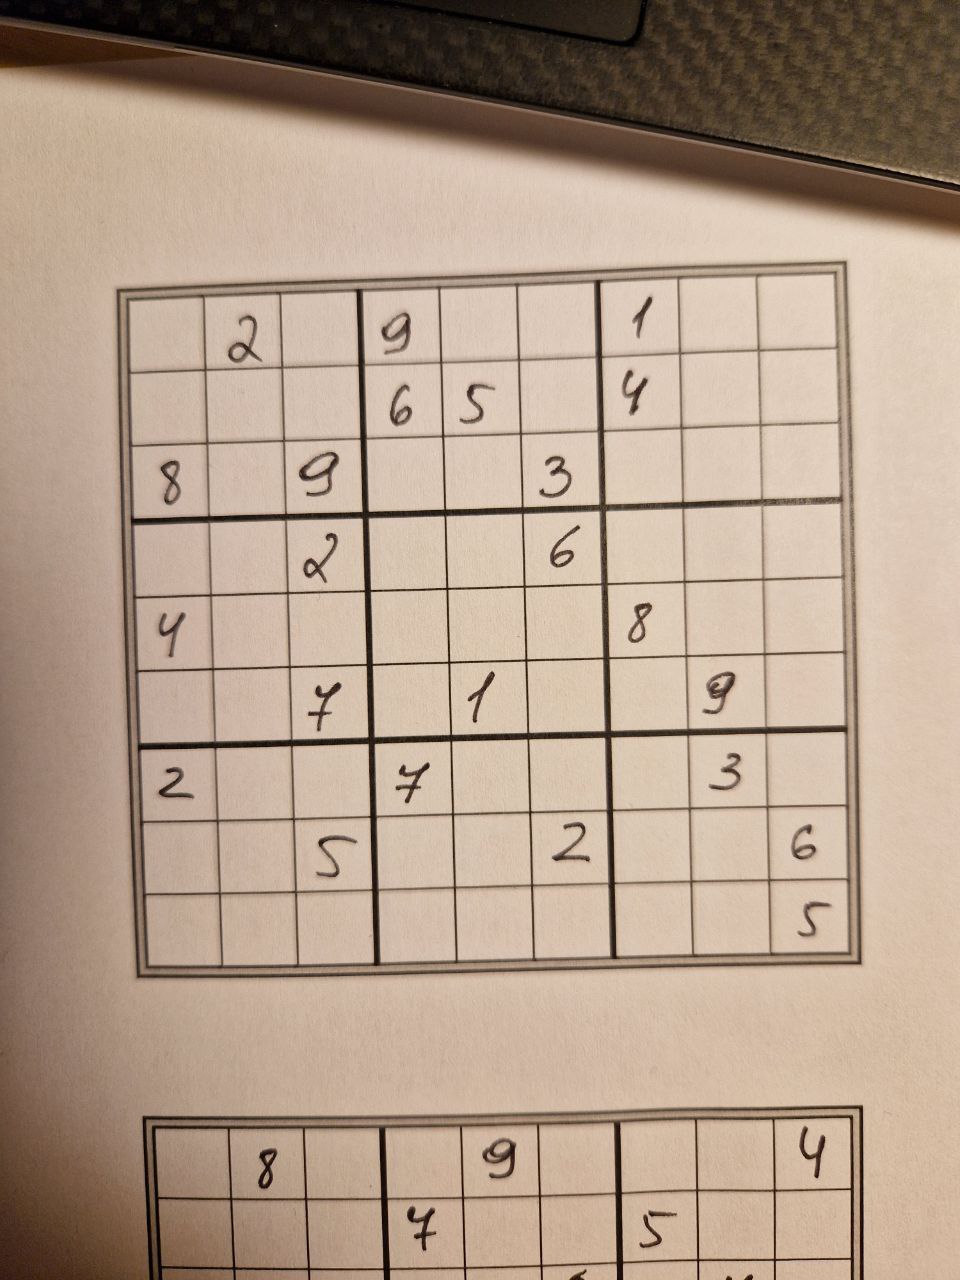 2 9 1
6 5 4
8 9 3
2 6
4 8
7 1 9
2 7 3
5 2 6
5
8 9 4
7 5